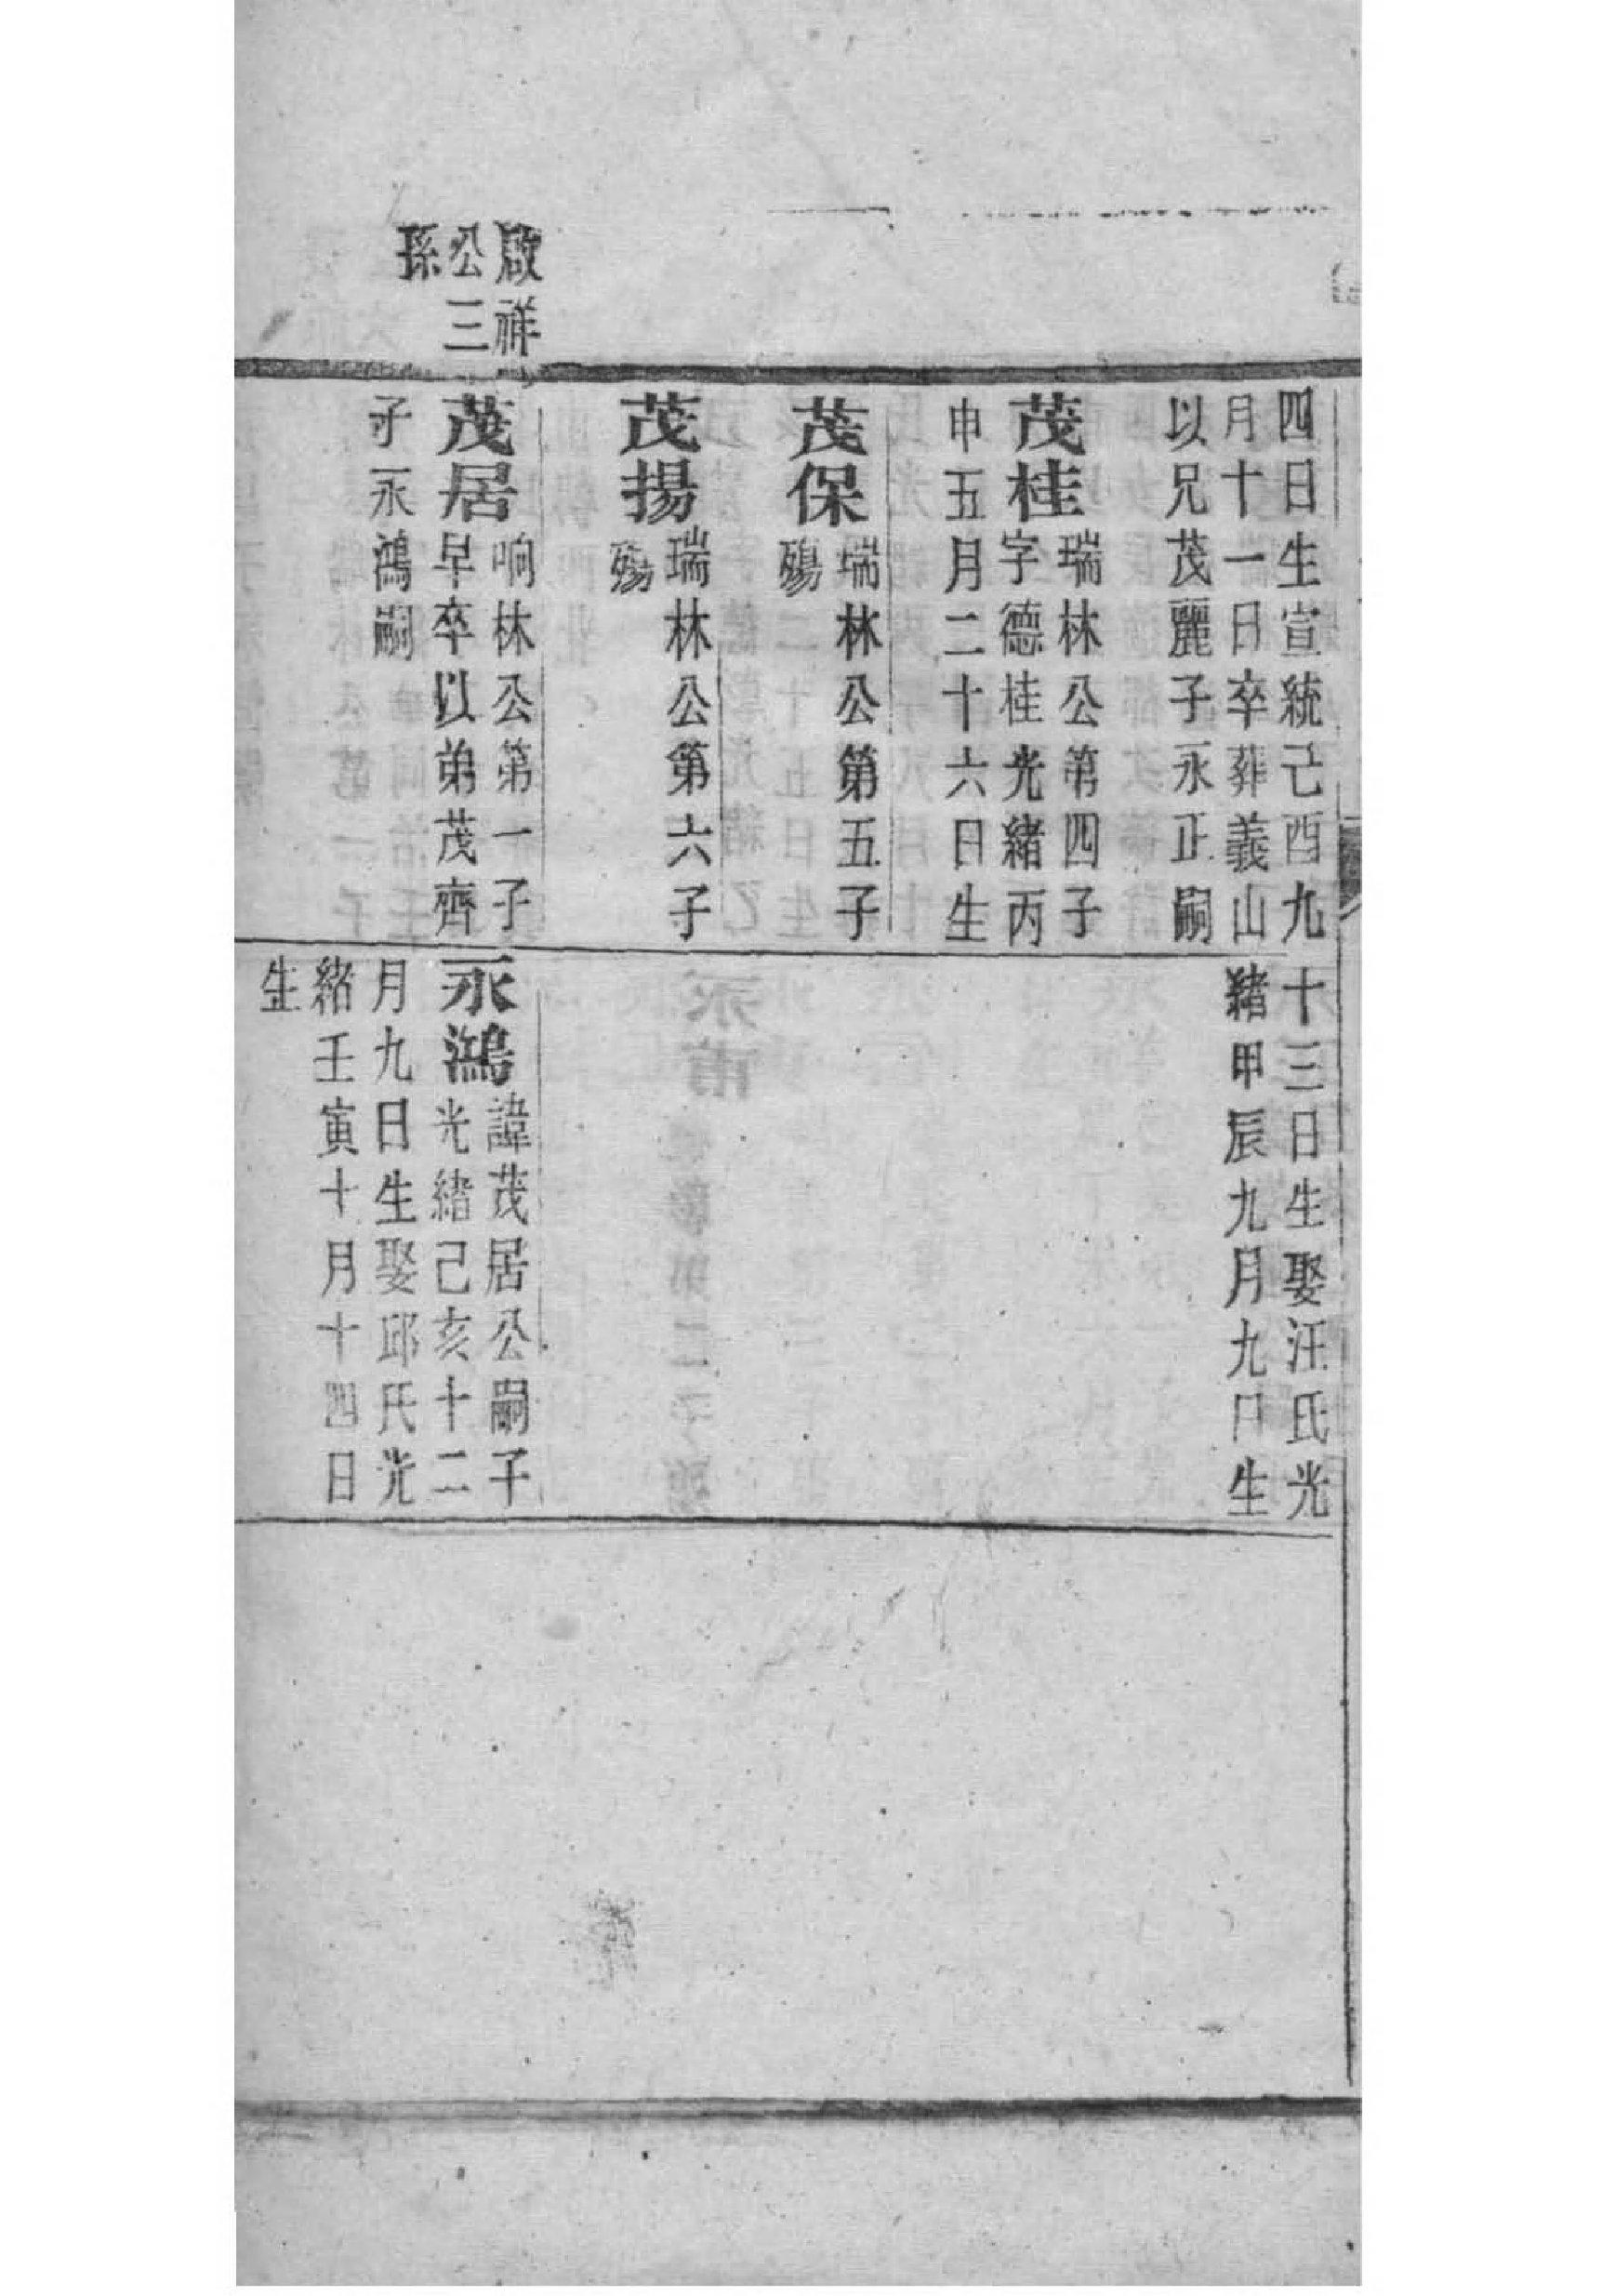 四日生宣統己酉九
月十一日卒葬義山
以兄茂麗子永正嗣
茂桂
瑞林公第四子
字德桂光緒丙
申五月二十六日生
茂保
瑞林公第五子
殤
茂揚
瑞林公第六子
殤
啟祥
公三
孫
茂居
响林公第一子
早卒以弟茂齊
子永鴻嗣
十三日生娶汪氏光
緒甲辰九月九日生
永鴻
諱茂居公嗣子
光緒己亥十二
月九日生娶邱氏光
緒壬寅十月十四日
生